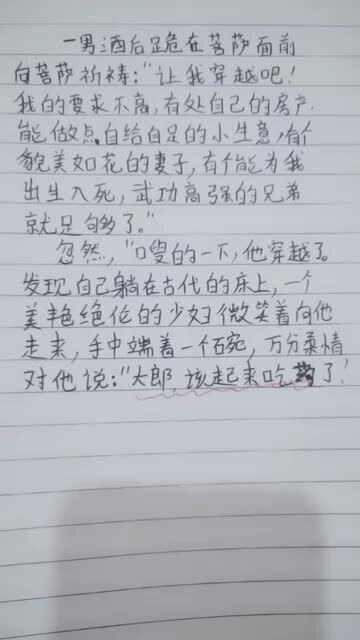 一男酒后跪在菩萨面前
向菩萨祈祷:"让我穿越吧!
我的要求不高,有处自己的房产,
能做点自给自足的小生意,有个
貌美如花的妻子,有个能为我
出生入死,武功高强的兄弟
就足够了。"
忽然,"嗖的一下,他穿越了。
发现自己躺在古代的床上,一个
美艳绝伦的少妇微笑着向他
走来,手中端着一个碗,万分柔情
对他说:"大郎,该起来吃药了!